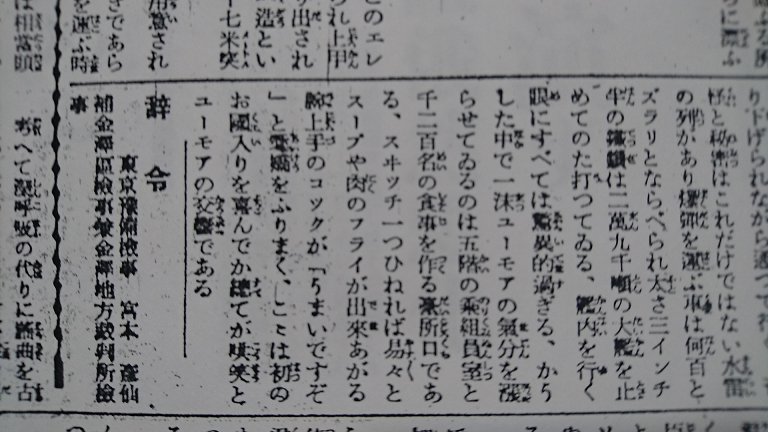 り下げられながら
怪と秘密はこれだけではない水雷
の列があり爆弾を運ぶ車は何百と
ズラリとならべられ太さ三インチ
半の鐵鎖は二萬九千噸の大艦を止
めてのた打つてゐる、艦内を行く
眼にすべては驚異的過ぎる、かう
した中で一沫ユーモアの氣分を漲
らせてゐるのは五階の乘組員室と
千二百名の食事を作る臺所口であ
る、スヰッチ一つひねれば易々と
スープや肉のフライが出來あがる
腕上手のコックが「うまいですぞ
」と愛嬌をふりまく、こゝは初の
お國入りを喜んでか總てが咲笑と
ユーモアの交響である
辭令
東京豫備檢事 宮本 彦仙
補金澤區檢事兼金澤地方裁判所檢
事
ちへて深呼吸の代りに謠曲を古
このエレ
られ上甲
り出され
造とい
十七米突
用意され
きであら
を運ぶ時
は相當頭